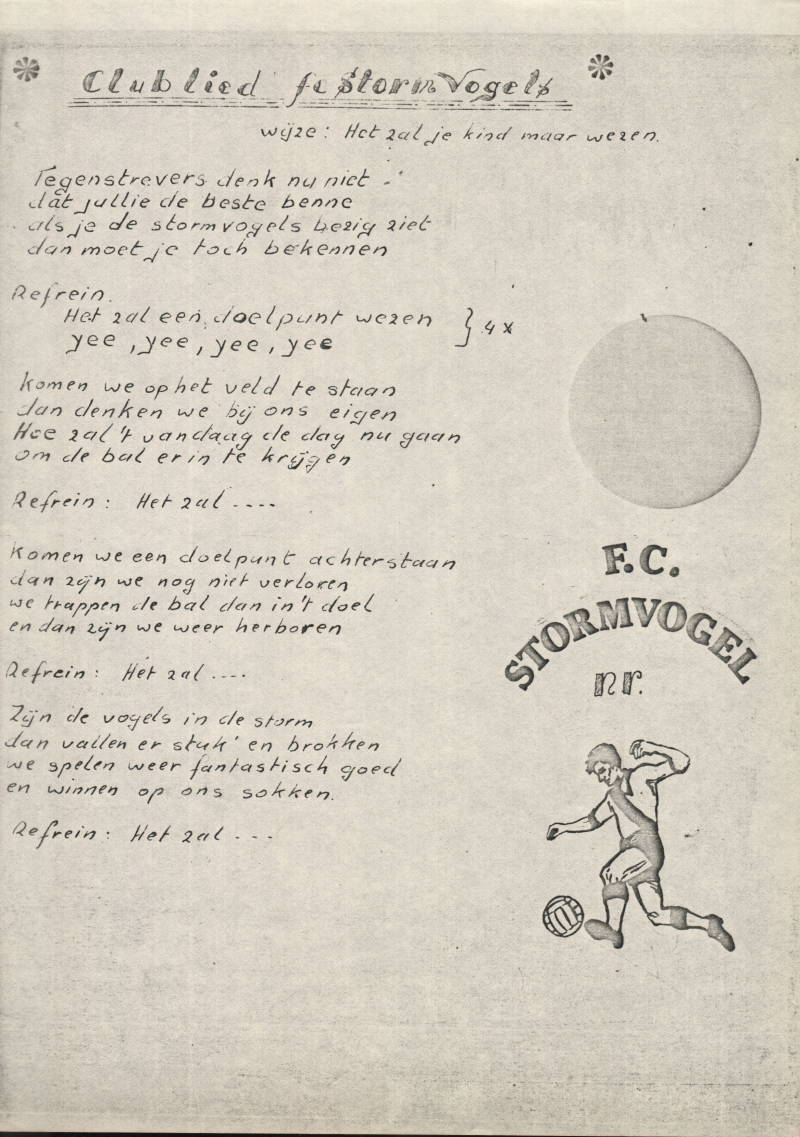 Clublied fc StormVogels
wijze: Het zal je kind maar wezen.
Tegenstrevers denk nu niet
dat jullie de beste benne
als je de stormvogels bezig ziet
dan moet je toch bekennen
Refrein.
Het zal een doelpunt wezen
yee, yee, yee, yee } 4x
Komen we op het veld te staan
dan denken we bij ons eigen
Hoe zal 't vandaag de dag nu gaan
om de bal er in te krijgen
Refrein: Het zal ....
Komen we een doelpunt achterstaan
dan zijn we nog niet verloren
we trappen de bal dan in 't doel
en dan zijn we weer herboren
Refrein: Het zal ....
Zijn de vogels in de storm
dan vallen er stuk' en brokken
we spelen weer fantastisch goed
en winnen op ons sokken.
Refrein: Het zal ...
F.C.
STORMVOGEL
nr.